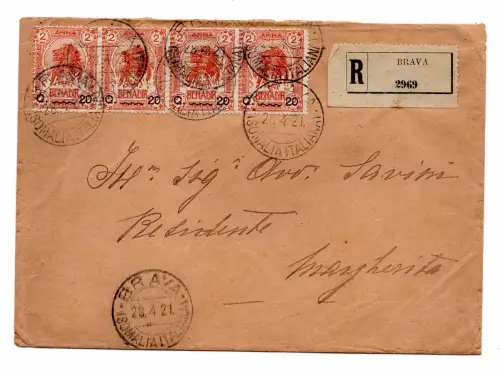 2 ANNA 2 2 ANNA 2 2 ANNA 2 2 ANNA 2
BENADIR BENADIR BENADIR BENADIR
20 20 20 20
BRAVA
(SOMALIA ITALIANA)
28.4.21
(SOMALIA ITALIANA)
28.4.21.
(SOMALIA ITALIANA)
R
BRAVA
2969
Ill mo Sig r Avv. Savini
Residente
Margherita
BRAVA
28.4.21.
(SOMALIA ITALIANA)